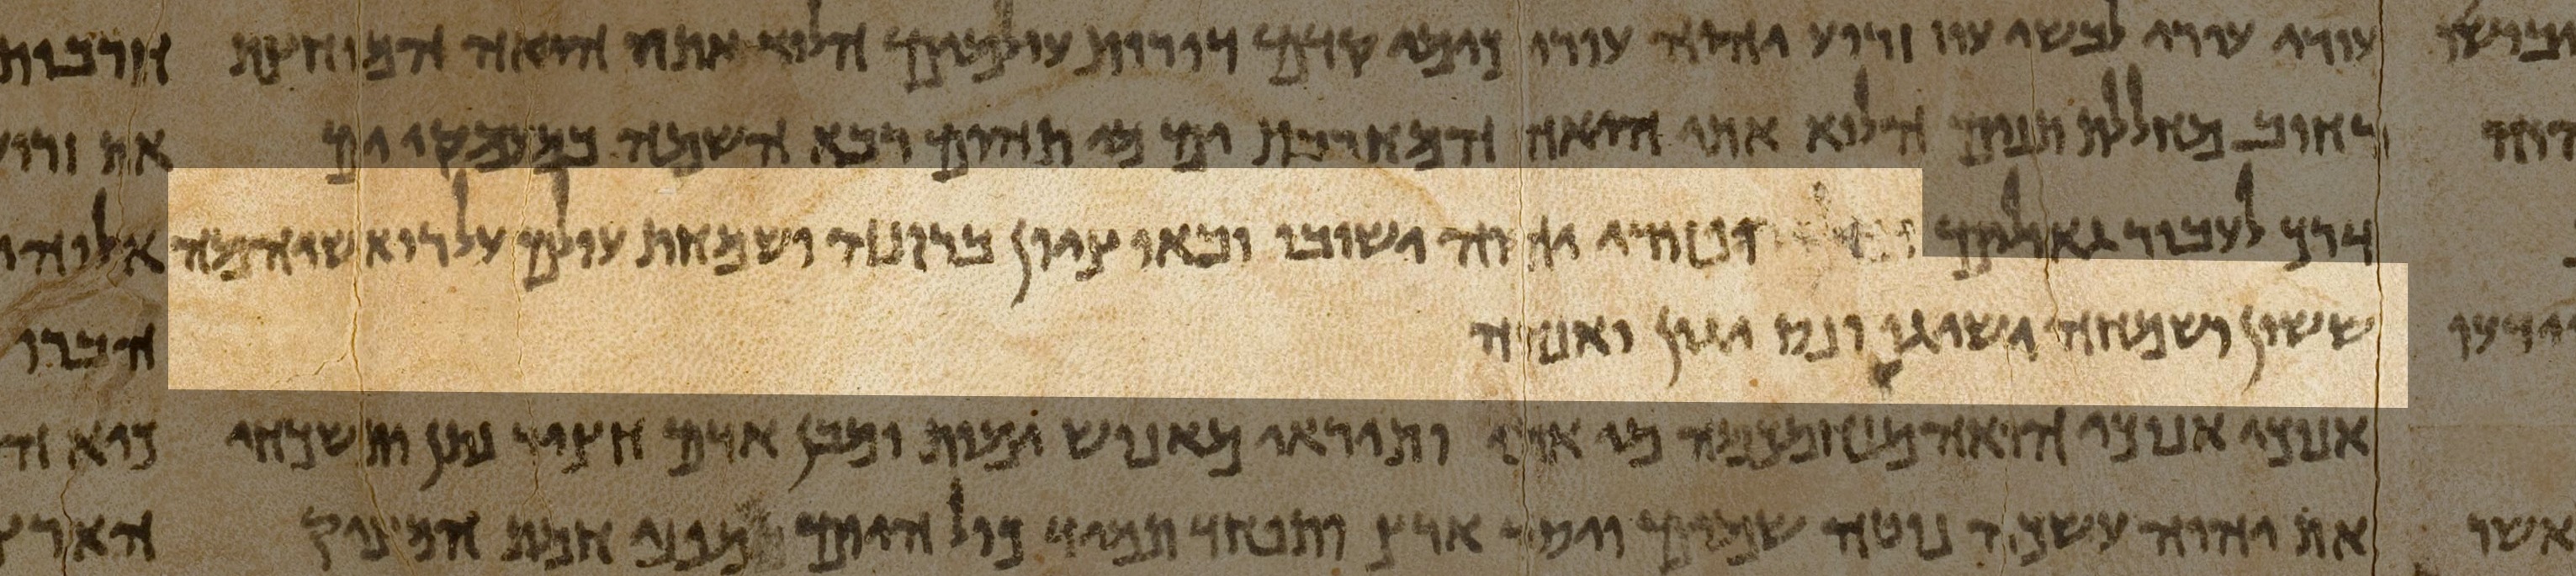 עורי עורי לבשי עוז זרוע יהוה עורי כימי קדם דורות עולמים הלוא אתי היאה המוחצת
רחוב מחללת תנין הלוא אתי היאה המחרבת ים מי תהום רבא השמה במעמקי ים
דרך לעבור גאולים ופזורי יהוה ישובו ובאו ציון ברונה ושמחת עולם על רואשיהמה
ששון ושמחה ישיגו ונס יגון ואנחה
אנוכי אנוכי היאה מנחמכמה מי את ותיראי מאנוש ימות ומבן אדם חציר נתן ותשכחי
את יהוה עשכה נוטה שמים ויסד ארץ ותפחד תמיד כול היום מפני חמת המציק